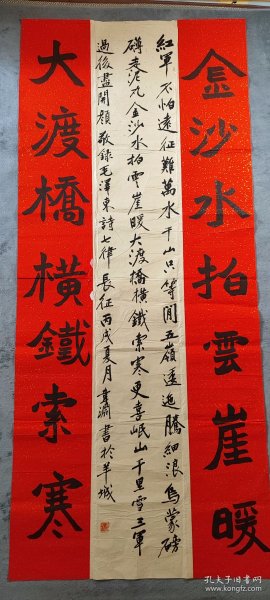 金沙水拍雲崖暖
紅軍不怕遠征難萬水千山只等閒五嶺逶迤騰細浪烏蒙磅
礴走泥丸金沙水拍雲崖暖大渡橋橫鐵索寒更喜岷山千里雪三軍
過後盡開顏敬錄毛澤東詩七律長征丙戌夏月書於羊城
大渡橋橫鐵索寒
孔夫子旧书网